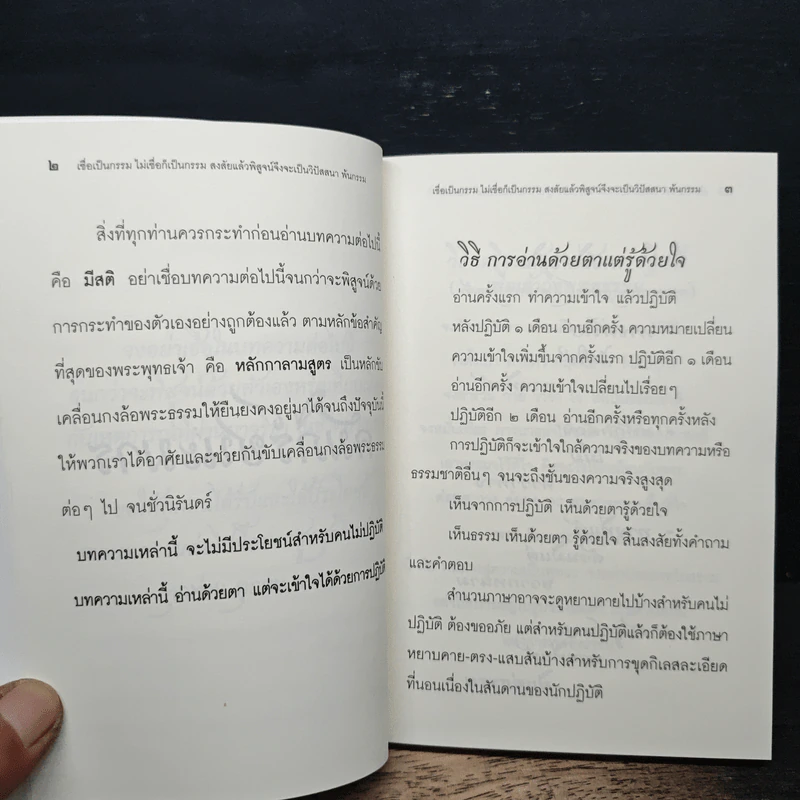 ๒ เชื่อเป็นกรรม ไม่เชื่อก็เป็นกรรม สงสัยแล้วพิสูจน์จึงจะเป็นวิปัสสนา พ้นกรรม
สิ่งที่ทุกท่านควรกระทำก่อนอ่านบทความต่อไปนี้
คือ มีสติ อย่าเชื่อบทความต่อไปนี้จนกว่าจะพิสูจน์ด้วย
การกระทำของตัวเองอย่างถูกต้องแล้ว ตามหลักข้อสำคัญ
ที่สุดของพระพุทธเจ้า คือ หลักกาลามสูตร เป็นหลักขับ
เคลื่อนกงล้อพระธรรมให้ยืนยงคงอยู่มาได้จนถึงปัจจุบันนี้
ให้พวกเราได้อาศัยและช่วยกันขับเคลื่อนกงล้อพระธรรม
ต่อๆ ไป จนชั่วนิรันดร์
บทความเหล่านี้ จะไม่มีประโยชน์สำหรับคนไม่ปฏิบัติ
บทความเหล่านี้ อ่านด้วยตา แต่จะเข้าใจได้ด้วยการปฏิบัติ
เชื่อเป็นกรรม ไม่เชื่อก็เป็นกรรม สงสัยแล้วพิสูจน์จึงจะเป็นวิปัสสนา พ้นกรรม ๓
วิธี การอ่านด้วยตาแต่รู้ด้วยใจ
อ่านครั้งแรก ทำความเข้าใจ แล้วปฏิบัติ
หลังปฏิบัติ ๑ เดือน อ่านอีกครั้ง ความหมายเปลี่ยน
ความเข้าใจเพิ่มขึ้นจากครั้งแรก ปฏิบัติอีก ๑ เดือน
อ่านอีกครั้ง ความเข้าใจเปลี่ยนไปเรื่อยๆ
ปฏิบัติอีก ๒ เดือน อ่านอีกครั้งหรือทุกครั้งหลัง
การปฏิบัติก็จะเข้าใจใกล้ความจริงของบทความหรือ
ธรรมชาติอื่นๆ จนจะถึงชั้นของความจริงสูงสุด
เห็นจากการปฏิบัติ เห็นด้วยตารู้ด้วยใจ
เห็นธรรม เห็นด้วยตา รู้ด้วยใจ สิ้นสงสัยทั้งคำถาม
และคำตอบ
สำนวนภาษาอาจจะดูหยาบคายไปบ้างสำหรับคนไม่
ปฏิบัติ ต้องขออภัย แต่สำหรับคนปฏิบัติแล้วก็ต้องใช้ภาษา
หยาบคาย-ตรง-แสบสันบ้างสำหรับการขุดกิเลสละเอียด
ที่นอนเนื่องในสันดานของนักปฏิบัติ